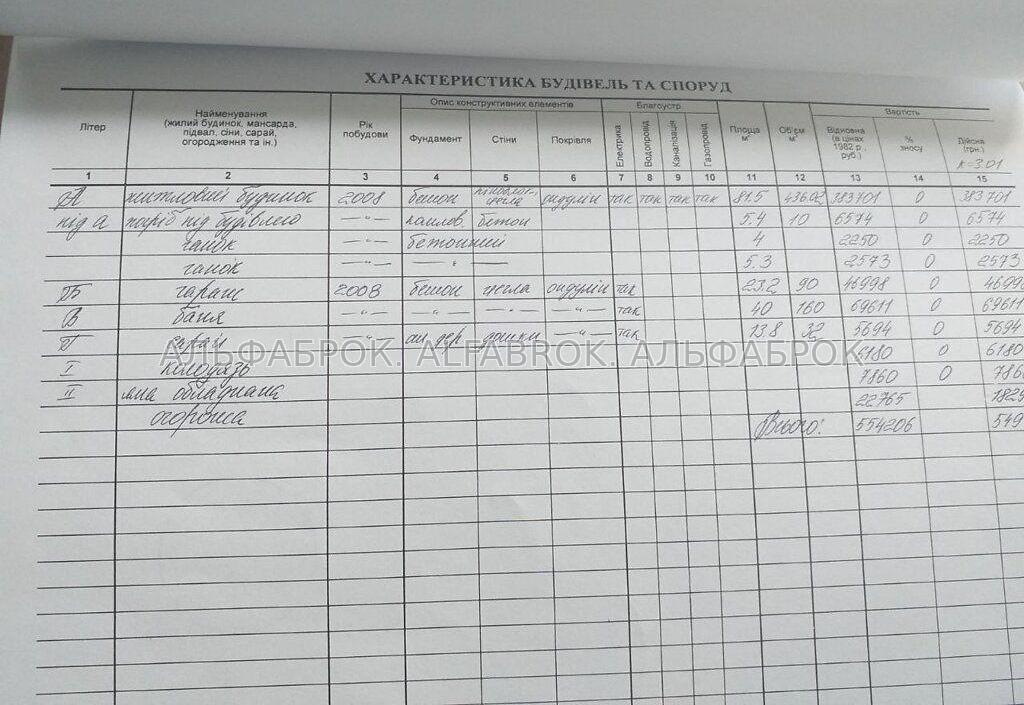 ХАРАКТЕРИСТИКА БУДІВЕЛЬ ТА СПОРУД
Літер
Найменування
(жилий будинок, мансарда,
підвал, сіни, сарай,
огородження та ін.)
Рік
побудови
Опис конструктивних елементів
Фундамент Стіни Покрівля
Благоустр.
Електрика Водопровід Каналізація Газопровід
Площа
м²
Об'єм
м³
Вартість
Відновна
(в цінах
1982 р.,
руб.)
%
зносу
Дійсна
(грн.)
к=3.01
1 2 3 4 5 6 7 8 9 10 11 12 13 14 15
А житловий будинок 2008 бетон цегла ондулін так так так так 81.5 436.02 383701 0 383701
під А погріб під будівлею —"— бетон 5.4 10 6574 0 6574
ганок —"— бетонний 4 2250 0 2250
ганок —"— —"— 5.3 2573 0 2573
Б гараж 2008 бетон цегла ондулін так 23.2 90 46998 0 46998
В баня —"— —"— —"— —"— так 40 160 69611 0 69611
Г сарай —"— дошки —"— так 13.8 32 5694 0 5694
І колодязь 6180 0 6180
ІІ яма обладнана 7860 0 786
огорожа 22765 1829
Всього: 554206 549
АЛЬФАБРОК. ALFABROK. АЛЬФАБРОК